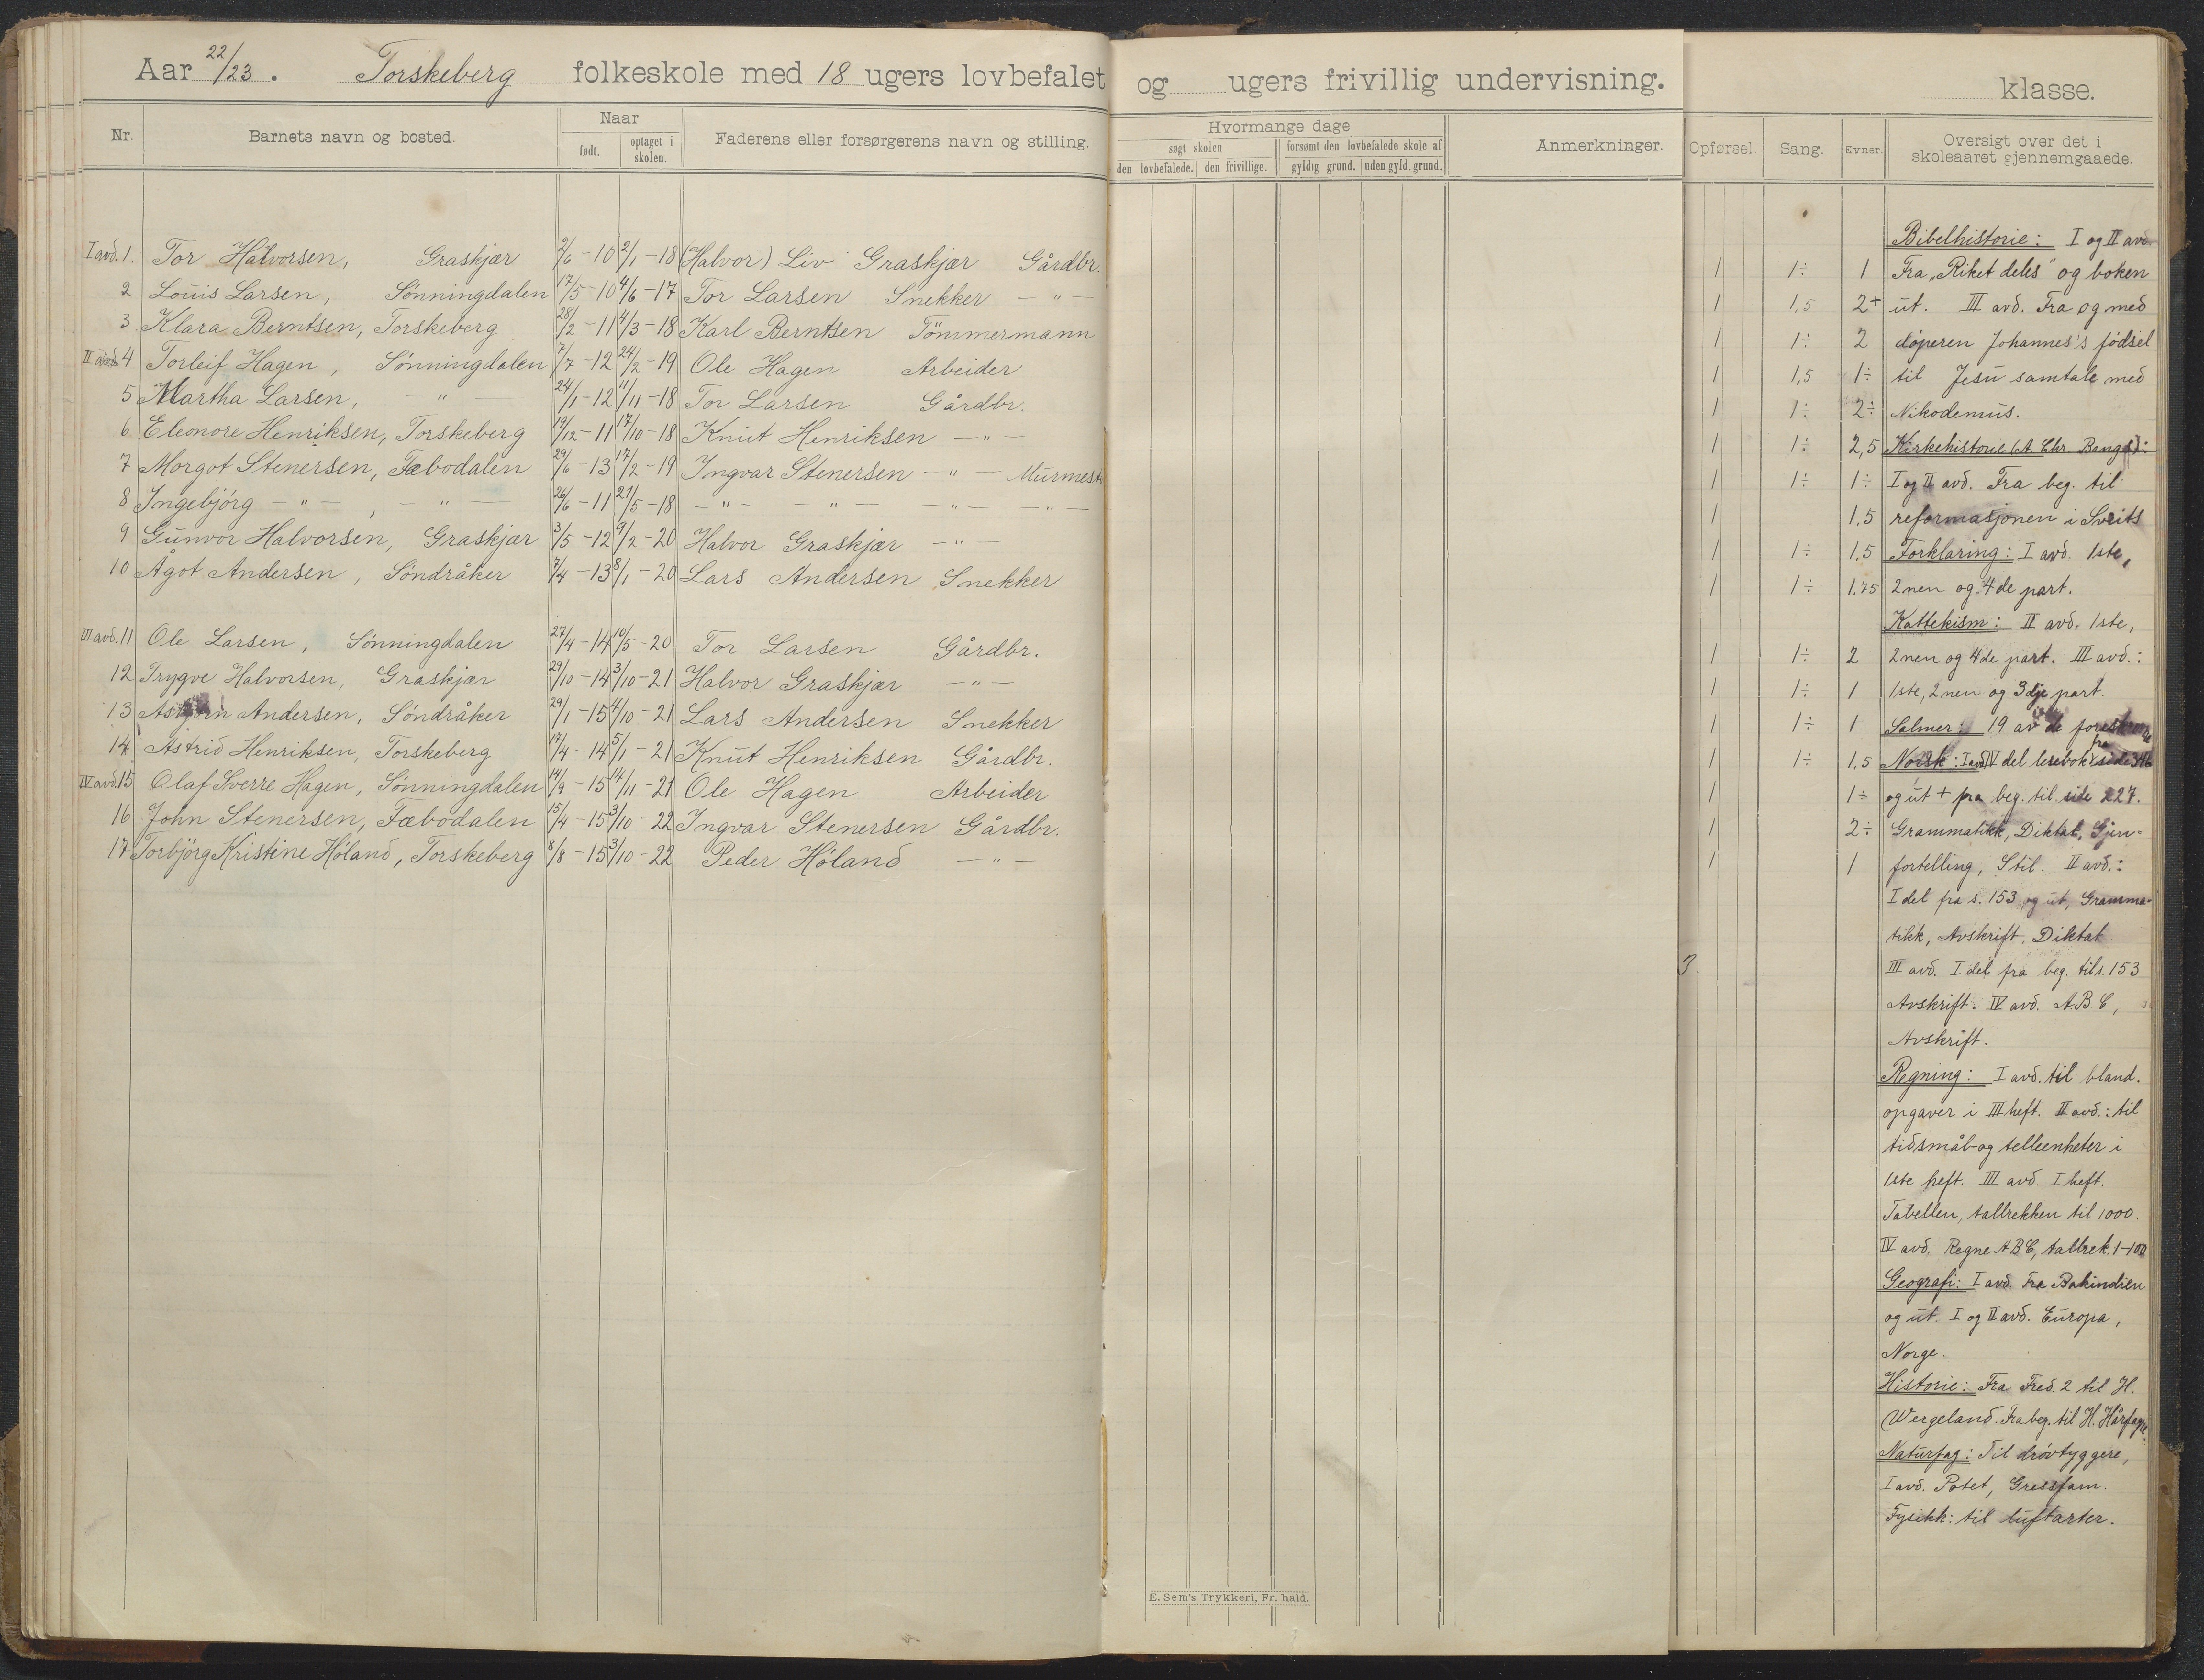 Aar 22/23. Torskeberg folkeskole med 18 ugers lovbefalet og ugers frivillig undervisning. klasse.
Nr. Barnets navn og bosted. Naar født. optaget i skolen. Faderens eller forsørgerens navn og stilling.
Hvormange dage
søgt skolen forsømt den lovbefalede skole af
den lovbefalede. den frivillige. gyldig grund. uden gyld. grund.
Anmerkninger.
Opførsel. Sang. Evner. Oversigt over det i skoleaaret gjennemgaaede.
I avd. 1. Tor Halvorsen, Graskjær 2/6-10 2/1-18 (Halvor) Liv Graskjær Gårdbr.
2 Louis Larsen, Sönningdalen 17/5-10 4/6-17 Tor Larsen Snekker -"-
3. Klara Berntsen, Torskeberg 28/2-11 4/3-18 Karl Berntsen Tömmermann
II avd. 4 Torleif Hagen, Sönningdalen 7/7-12 24/2-19 Ole Hagen Arbeider
5 Martha Larsen, -"- 24/1-12 11/11-18 Tor Larsen Gårdbr.
6 Eleonore Henriksen, Torskeberg 19/12-11 17/10-18 Knut Henriksen -"-
7 Morgot Stenersen, Fæbodalen 29/6-13 17/2-19 Ingvar Stenersen -"- Murmest.
8 Ingebjörg -"-, -"- 26/6-11 21/5-18 -"- -"- -"- -"-
9 Gunvor Halvorsen, Graskjær 3/5-12 9/2-20 Halvor Graskjær -"-
10 Ågot Andersen, Söndråker 7/4-13 8/1-20 Lars Andersen Snekker
III avd. 11 Ole Larsen, Sönningdalen 27/4-14 10/5-20 Tor Larsen Gårdbr.
12 Trygve Halvorsen, Graskjær 29/10-14 3/10-21 Halvor Graskjær -"-
13 Andersen, Söndråker 29/1-15 4/10-21 Lars Andersen Snekker
14 Astrid Henriksen, Torskeberg 17/4-14 5/1-21 Knut Henriksen Gårdbr.
IV avd. 15 Olaf Sverre Hagen, Sönningdalen 14/9-15 14/11-21 Ole Hagen Arbeider
16 John Stenersen, Fæbodalen 15/4-15 3/10-22 Ingvar Stenersen Gårdbr.
17 Torbjörg Kristine Höland, Torskeberg 8/8-15 3/10-22 Peder Höland -"-
E. Sem's Trykkeri, Fr. hald.
1 1÷ 1
1 1,5 2+
1 1÷ 2
1 1,5 1÷
1 1÷ 2÷
1 1÷ 2,5
1 1÷ 1÷
1 1,5
1 1÷ 1,5
1 1÷ 1,75
1 1÷ 2
1 1÷ 1
1 1÷ 1
1 1÷ 1,5
1 1÷
1 2÷
1 1
3
Bibelhistorie: I og II avd.
Fra "Riket deles" og boken
ut. III avd. Fra og med
döperen Johannes's födsel
til Jesu samtale med
Nikodemus.
Kirkehistorie (A. Chr Bangs):
I og II avd. Fra beg. til
reformasjonen i Sveits
Forklaring: I avd. 1ste,
2nen og 4de part.
Kattekism: II avd. 1ste,
2nen og 4de part. III avd.:
1ste, 2nen og 3dje part.
Salmer: 19 av de
Norsk: I avd. IV del lesebok fra side
og ut + fra beg. til side 227.
Grammatikk, Diktat, Gjen-
fortelling, Stil. II avd.:
I del fra s. 153 og ut, Gramma-
tikk, Avskrift, Diktat
III avd. I del fra beg. til s. 153
Avskrift. IV avd. A.B C,
Avskrift.
Regning: I avd. til bland.
opgaver i III heft. II avd.: til
tidsmål-og telleenheter i
1ste heft. III avd. I heft.
Tabellen, tallrekken til 1000.
IV avd. Regne A B C, tallrek. 1-100
Geografi: I avd. Fra Bakindien
og ut. I og II avd. Europa,
Norge.
Historie: Fra Fred. 2 til H.
Wergeland. Fra beg. til H. Hårfagre.
Naturfag: Til drövtyggere,
I avd. Potet, Gressfam.
Fysikk: til luftarter.